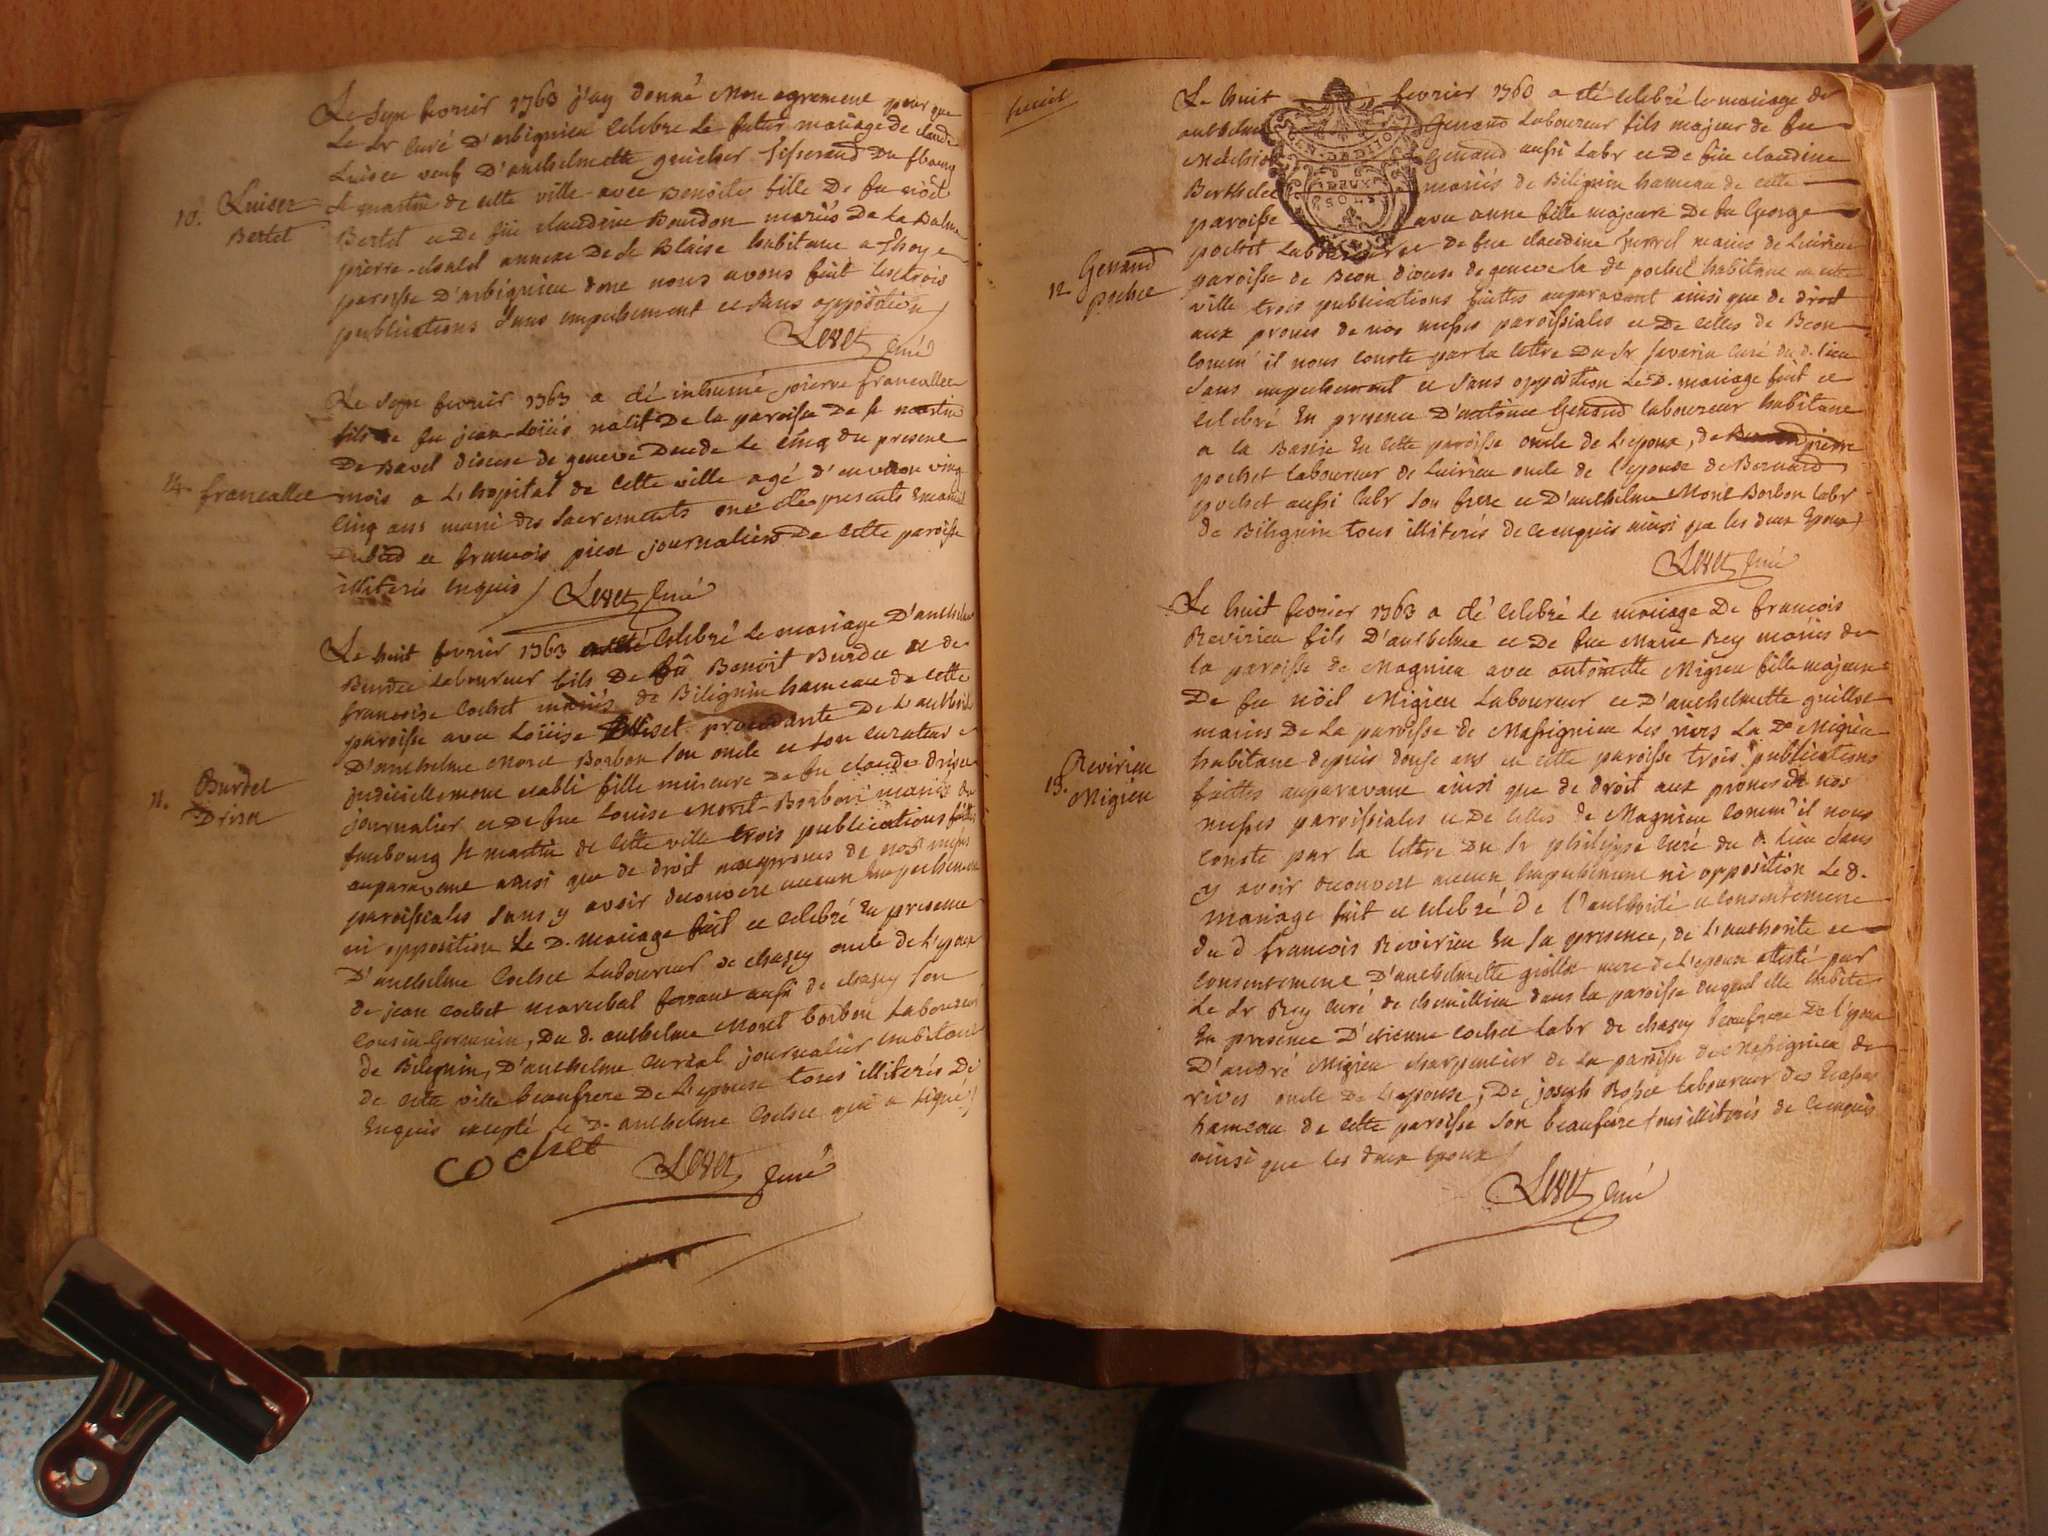 Le sept fevrier 1763 j'ay donné Mon agrement pour que
Le Sr Curé D'arbignieu Celebre Le futur mariage de claude
Luiset veuf D'anthelmette guicher tisserand Du fbourg
10. Luiset St martin de cette ville avec Benoite fille De fu nöel
Bertet Bertet et De füe claudine Bourdon mariés De La Balme
pierre-chatel annexe De St Blaise habitant a Thoÿe
paroisse D'arbignieu dont nous avons fait les trois
publications Sans empechement et sans opposition /
Levet Curé
Le Sept fevrier 1763 a été inhumé pierre francallet
fils de fu jean-Loüis natif De la paroisse De St martin
De Bavel diocese de geneve Decede Le cinq du present
14. francallet mois a L'hopital de Cette ville agé d'environ ving
Cinq ans muni des Sacrements ont été presents
et francois picot journaliers De cette paroisse
illiterés Enquis / Levet Curé
Le huit fevrier 1763 a été Celebré Le mariage D'anthelme
Burdet Laboureur fils De fû Benoit Burdet et de
francoise Cochet mariés de Bilignin hameau de cette
paroisse avec Loüise procedante De L'authorité
D'anthelme Moret Borbon Son oncle et son curateur
judiciellement etabli fille mineure De fu claude driset
11. Burdet journalier et De fue Louise Moret-Borbon mariés du
Driset faubourg St martin de Cette ville trois publications faittes
auparavant ainsi que de droit aux prones de nos messes
paroissiales Sans y avoir decouvert aucun Empechement
ni opposition Le D. mariage fait et celebré En presence
D'anthelme Cochet Laboureur de chazey oncle de L'epoux
de jean Cochet marechal ferrant aussi de chazey son
Cousin Germain, Du d. anthelme Moret borbon Laboureur
de Bilignin, D'anthelme Cureal journalier habitant
de cette ville beaufrere De L'epouse tous illiterés De
Enquis excepté le D. anthelme Cochet qui a signé /
Cochet
Levet Curé
huit
Le huit fevrier 1763 a été celebré le mariage de
anthelme Genand Laboureur fils majeur de fu
Melchior Genand aussi Labr et De füe claudine
Berthelet mariés de Bilignin hameau de cette
paroisse avec anne fille majeure De fu George
pochet Laboureur et de fue claudine mariés de Luirieu
12 Genand paroisse de Beon diocese de geneve la de pochet habitant en cette
pochet ville trois publications faittes auparavant ainsi que de droit
aux prones de nos messes paroissiales et De Celles de Beon
comm' il nous conste par la lettre Du Sr Saverin curé du d. lieu
Sans empechement et Sans opposition Le D. mariage fait et
celebré En presence D'antoine Genand laboureur habitant
a la Bastie En cette paroisse oncle de L'epoux, de pierre
pochet laboureur de Luirieu oncle de l'epouse de Bernard
pochet aussi labr Son frere et D'anthelme Moret Borbon labr
de Bilignin tous illiterés de Ce enquis ainsi que les deux Epoux /
Levet Curé
Le huit fevrier 1763 a été celebré Le mariage De francois
Revirieu fils D'anthelme et De fue Marie Rey mariés de
la paroisse de Magnieu avec antoinette Migieu fille majeure
De fu nöel Migieu Laboureur et D'anthelmette guillot
mariés De La paroisse de Massignieu Les rives La De Migieu
13. Revirieu habitant depuis douse ans en cette paroisse trois publications
Migieu faittes auparavant ainsi que de droit aux prones de nos
messes paroissiales et De Celles de Magnieu comm' il nous
Conste par la lettre Du Sr philippe Curé du d. lieu Sans
y avoir decouvert aucun Empechement ni opposition Le d.
mariage fait et celebré De l'authorité et consentement
du d francois Revirieu En sa presence, de L'authorité et
consentement D'anthelmette mere de L'epoux attesté par
Le Sr Rey Curé de chemillieu dans la paroisse duquel elle habite
En presence D'etienne Cochet Labr de chazey beaufrere De l'epoux
D'andré Migieu charpentier de La paroisse de Massignieu de
rives oncle De L'epouse, De joseph Rosset laboureur des Ecassaz
hameau de cette paroisse Son beaufrere tous illiterés de Ce enquis
ainsi que les deux Epoux /
Levet Curé